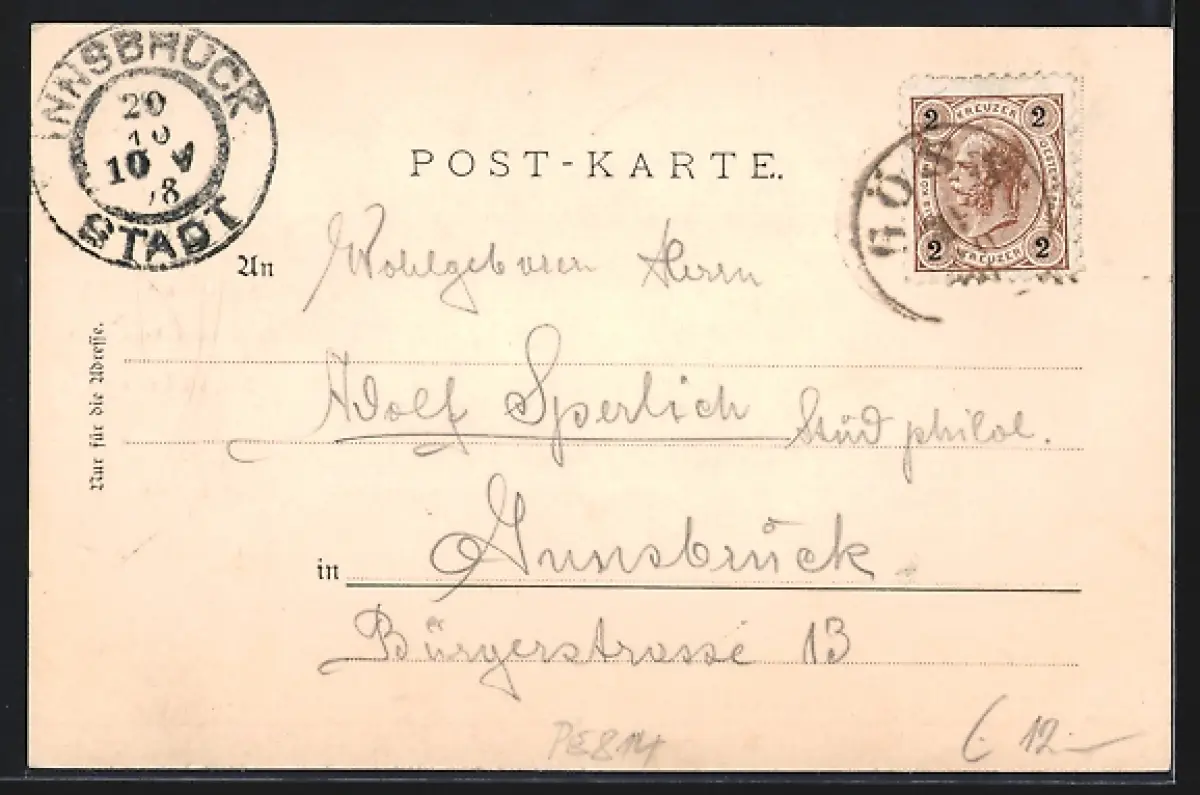 INNSBRUCK
20
10
10 V
/8
STADT
POST-KARTE.
2 KREUZER 2
2 KREUZER 2
GÖ
An Wohlgeboren Herrn
Nur für die Adresse.
Adolf Sperlich Stud philol.
in Innsbruck
Bürgerstrasse 13
PE814
12.-